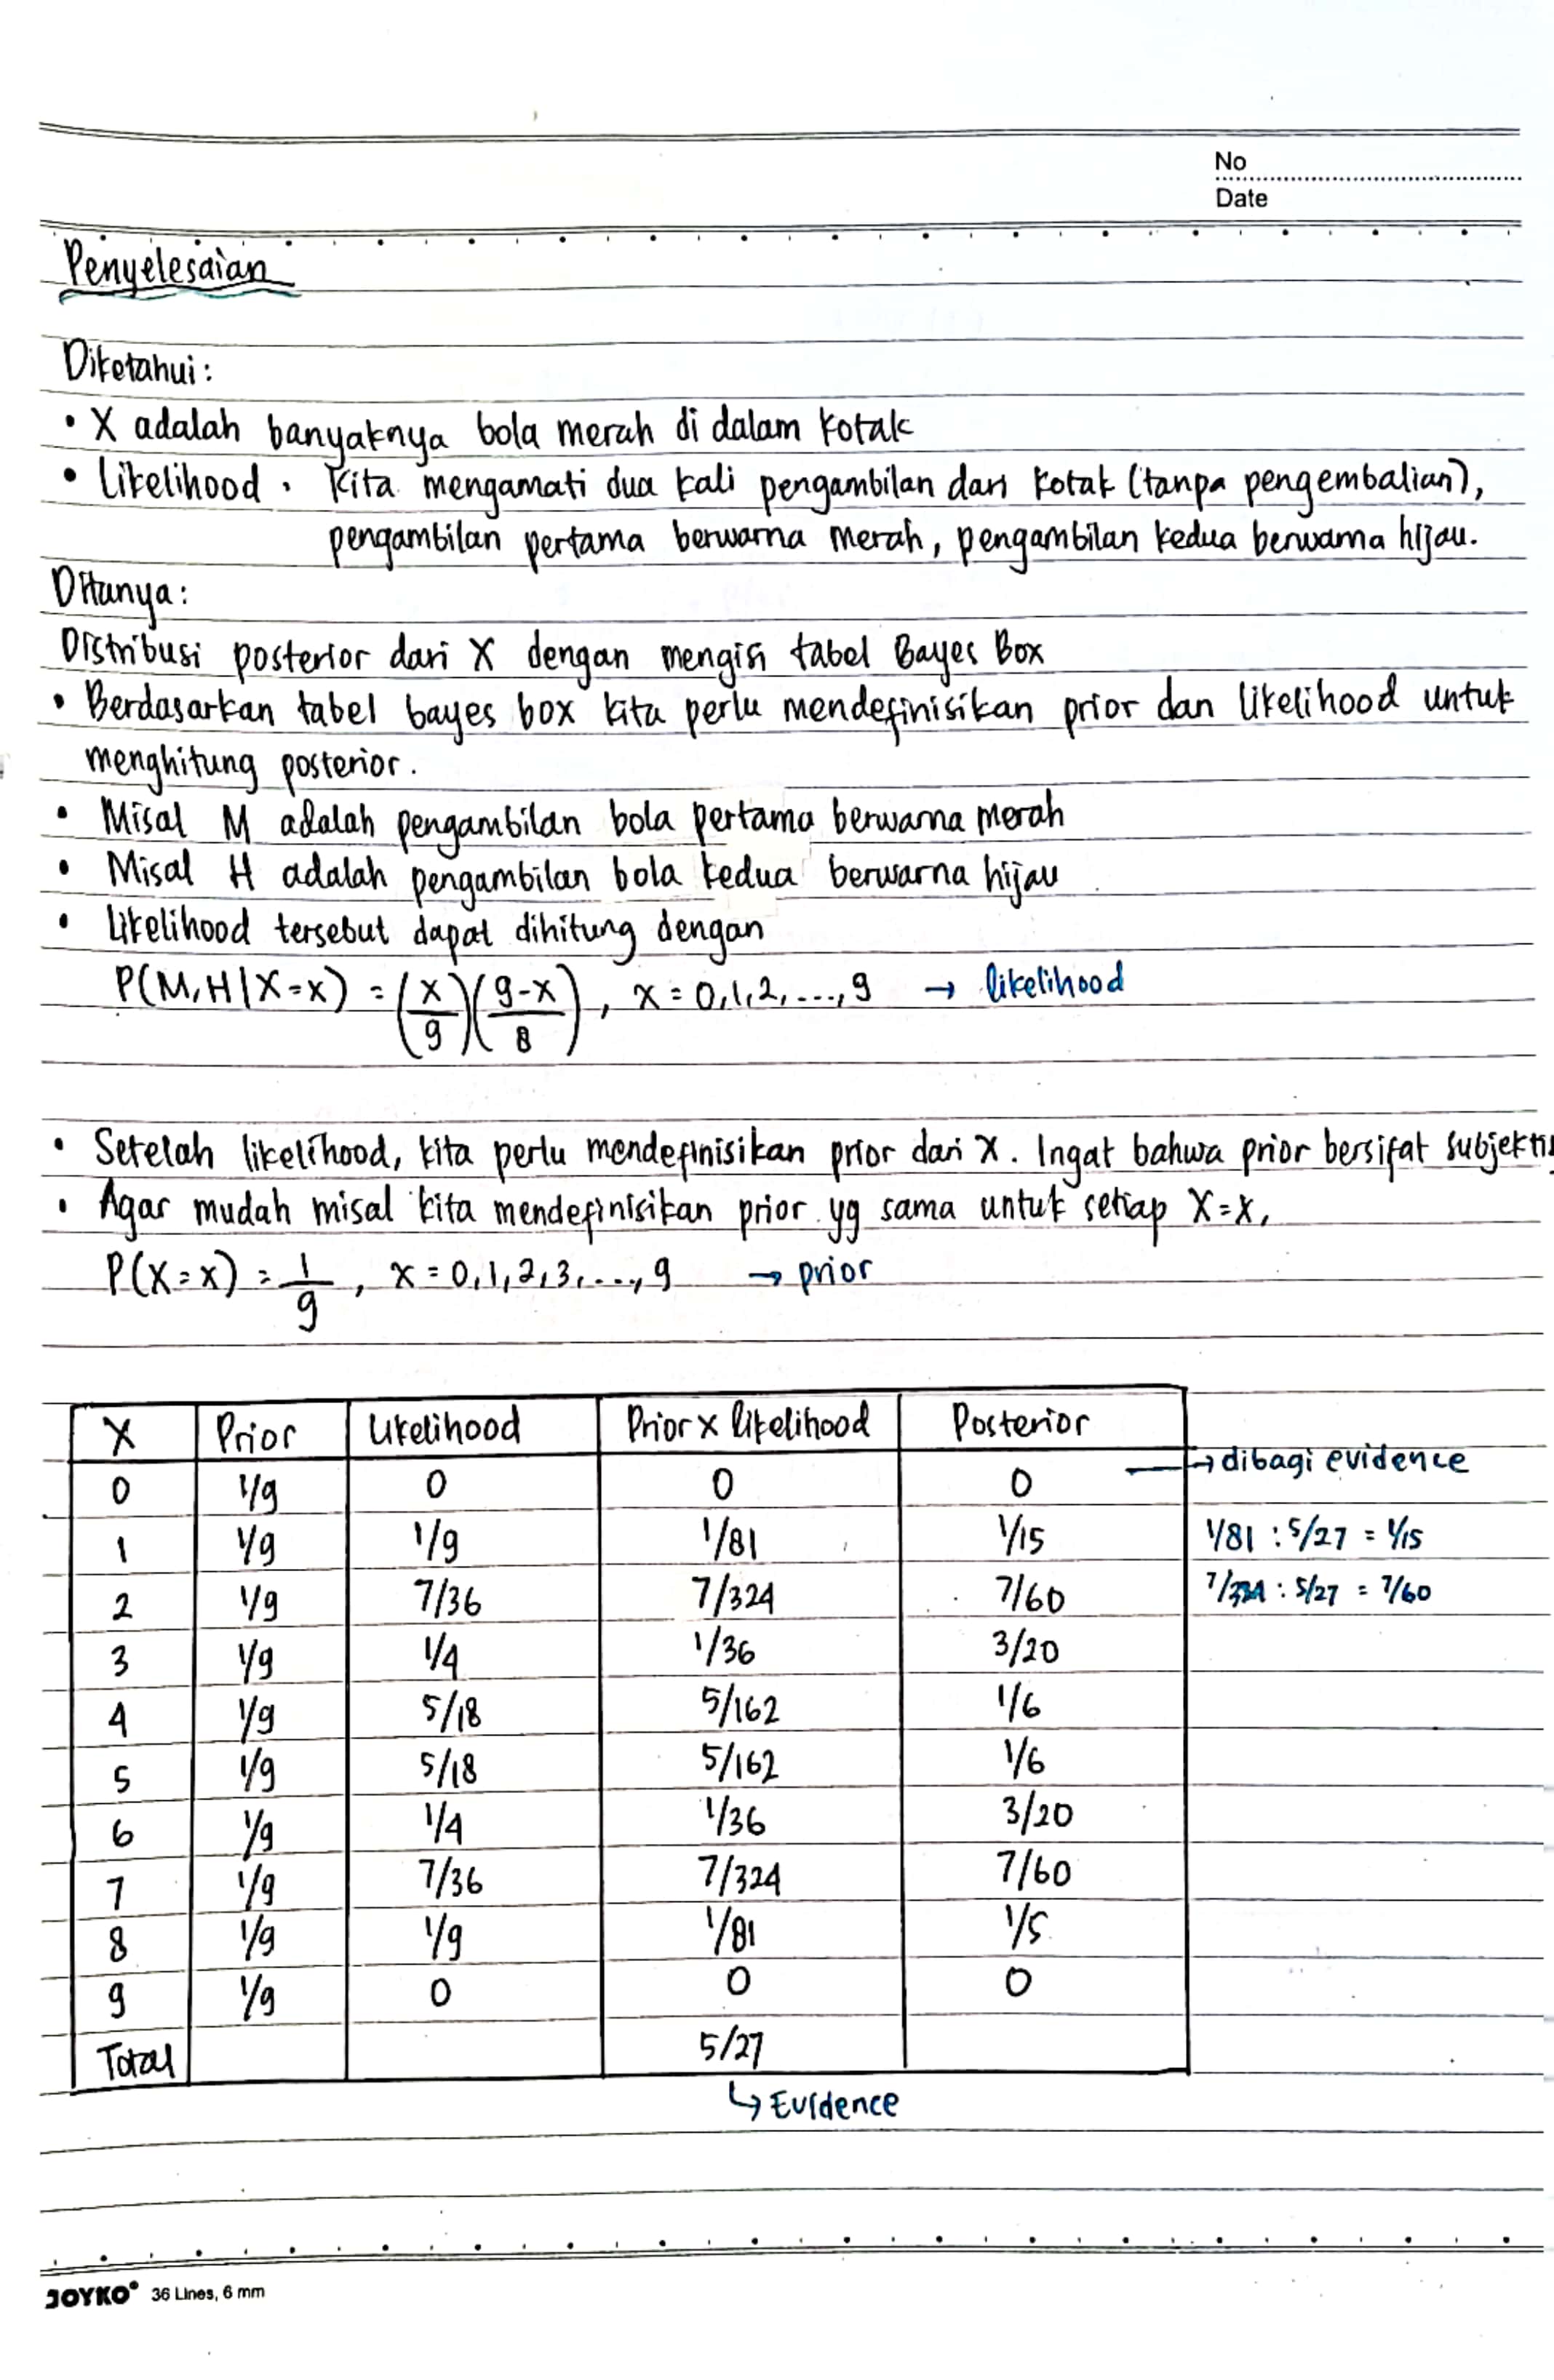 No
Date
Penyelesaian
Diketahui :
• X adalah banyaknya bola merah di dalam kotak
• Likelihood . Kita mengamati dua kali pengambilan dari kotak (tanpa pengembalian),
pengambilan pertama berwarna merah, pengambilan kedua berwarna hijau.
Ditanya :
Distribusi posterior dari X dengan mengisi tabel Bayes Box
• Berdasarkan tabel bayes box kita perlu mendefinisikan prior dan likelihood untuk
menghitung posterior.
• Misal M adalah pengambilan bola pertama berwarna merah
• Misal H adalah pengambilan bola kedua berwarna hijau
• likelihood tersebut dapat dihitung dengan
P(M,H|X=x) = (x/9)(9-x/8), x = 0,1,2,...,9 → likelihood
• Setelah likelihood, kita perlu mendefinisikan prior dari X. Ingat bahwa prior bersifat subjektif
• Agar mudah misal kita mendefinisikan prior yg sama untuk setiap X=x,
P(X=x) = 1/9, x = 0,1,2,3,...,9 → prior
X Prior Likelihood Prior x likelihood Posterior → dibagi evidence
0 1/9 0 0 0
1 1/9 1/9 1/81 1/15 1/81 : 5/27 = 1/15
2 1/9 7/36 7/324 7/60 7/324 : 5/27 = 7/60
3 1/9 1/4 1/36 3/20
4 1/9 5/18 5/162 1/6
5 1/9 5/18 5/162 1/6
6 1/9 1/4 1/36 3/20
7 1/9 7/36 7/324 7/60
8 1/9 1/9 1/81 1/5
9 1/9 0 0 0
Total 5/27
↳ Evidence
JOYKO 36 Lines, 6 mm